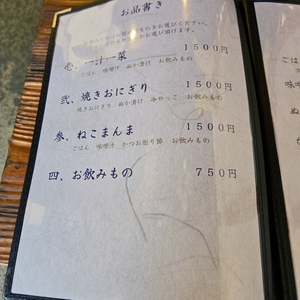 お品書き
壱、一汁一菜 1500円
ごはん 味噌汁 ぬか漬け お飲みもの
弐、焼きおにぎり 1500円
焼きおにぎり ぬか漬け 冷やっこ お飲みもの
参、ねこまんま 1500円
ごはん 味噌汁 かつお削り節 お飲みもの
四、お飲みもの 750円